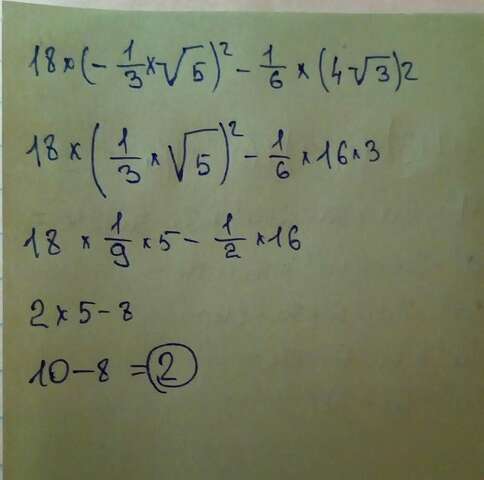 18×(-1/3×√5)²-1/6×(4√3)2
18×(1/3×√5)²-1/6×16×3
18×1/9×5-1/2×16
2×5-8
10-8=2